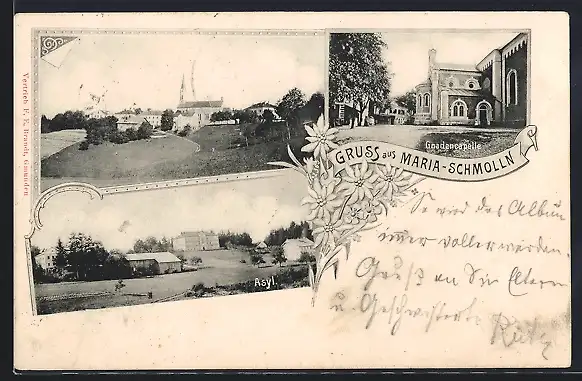 Gnadencapelle
GRUSS aus MARIA-SCHMOLLN
Vertrieb F. E. Brandt, Gmunden
Asyl.
So wird das Album
immer voller werden.
Gruß an die Eltern
u. Geschwister